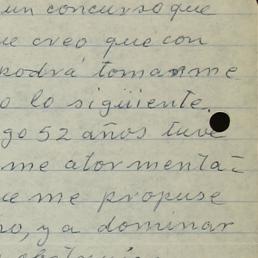 un concurso que
ue creo que con
podrá tomarme
o lo sigüiente.
go 52 años tuve
me atormenta=
ue me propuse
no, y a dominar